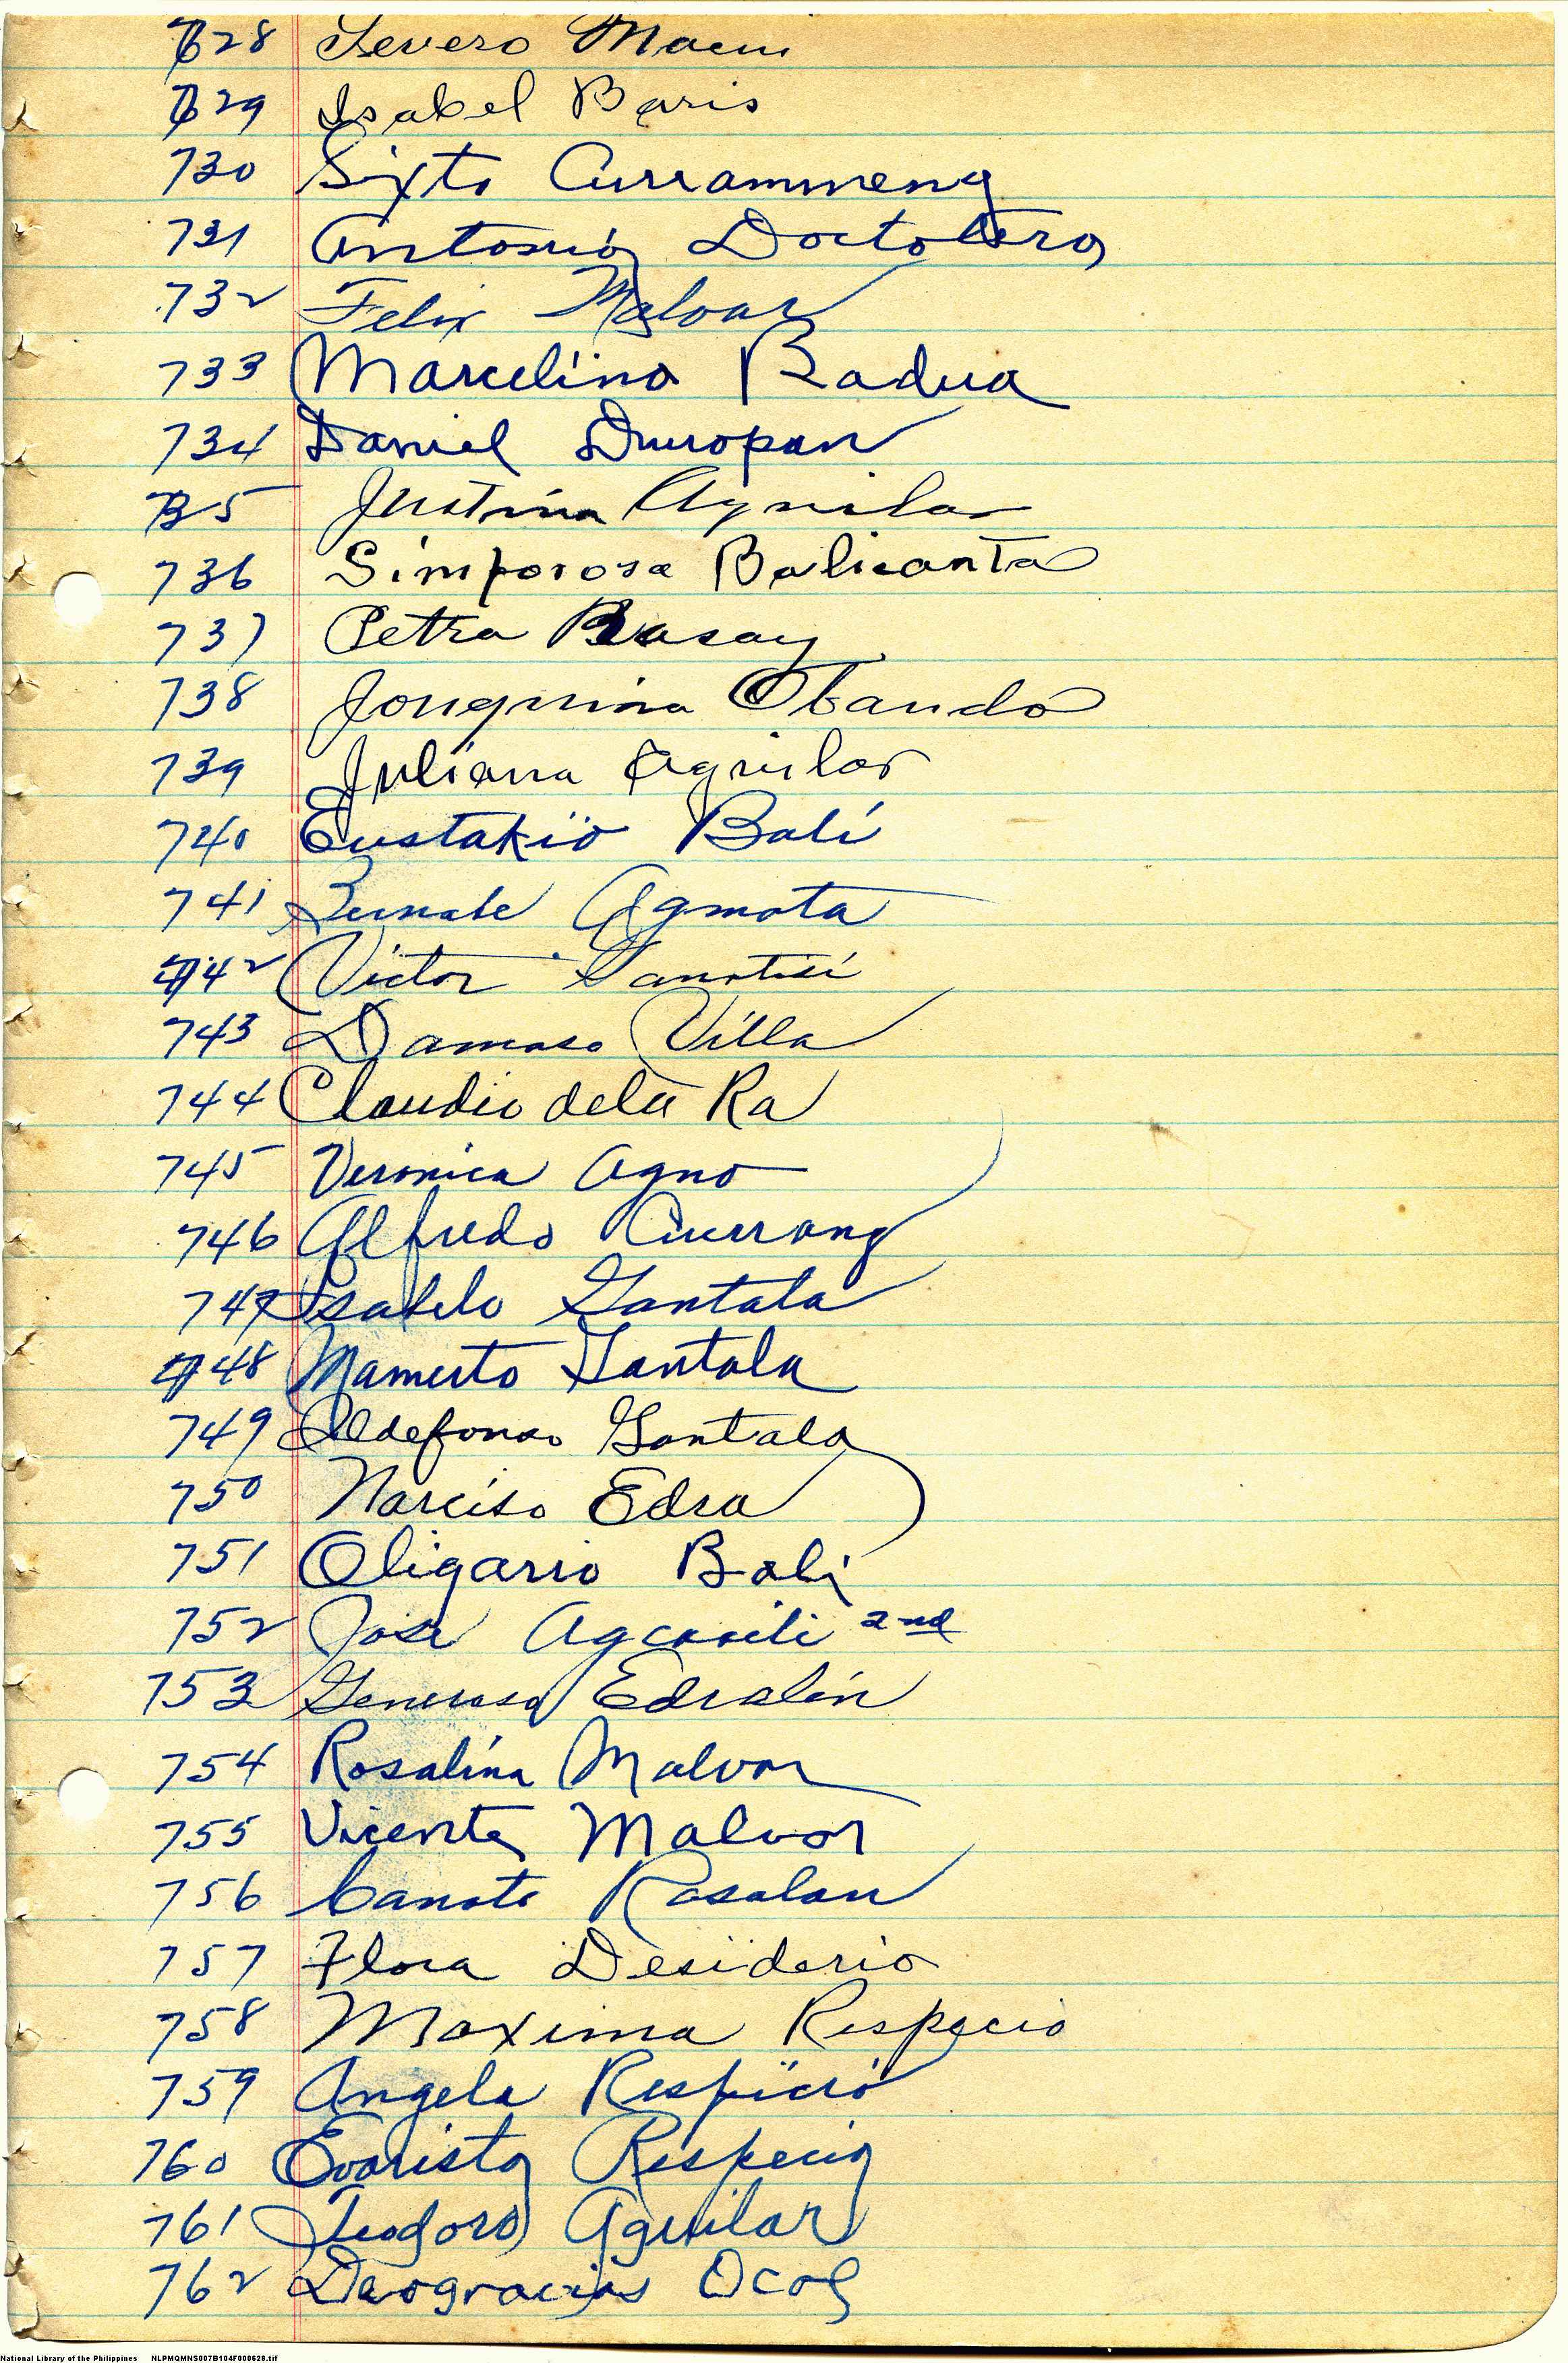 728 Severo Macu
729 Isabel Baris
730 Sixto Currammeng
731 Antonio Doctolero
732 Felix Malvar
733 Marcelino Badua
734 Daniel Duropan
735 Justina Aguilar
736 Simporosa Balicanta
737 Petra Basay
738 Jouquina Obando
739 Juliana Aguilar
740 Eustakio Bali
741 Agmata
742 Victor Ganotisi
743 Damaso Villa
744 Claudio dela Ra
745 Veronica Agno
746 Alfredo Currang
747 Isabelo Gantala
748 Mamerto Gantala
749 Ildefonso Gantala
750 Narciso Edra
751 Oligario Bali
752 Jose Agcaoili 2nd
753 Generosa Edralin
754 Rosalina Malvar
755 Vicente Malvar
756 Canoto Rasalan
757 Flora Desiderio
758 Maxima Respecio
759 Angela Respicio
760 Evaristo Respecio
761 Teodoro Aguilar
762 Deogracias Ocol
National Library of the Philippines NLPMQMNS007B104F000628.tif